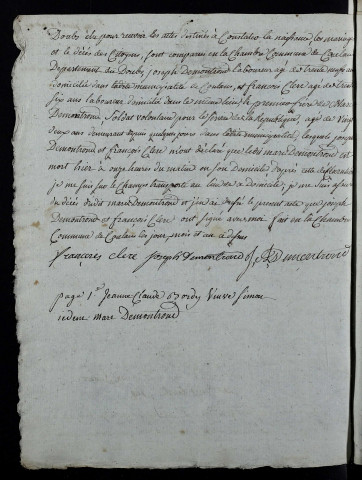 Doubs élu pour recevoir les actes destinés à Constater la naissance les mariages
et le décès des Citoyens, sont comparus en la Chambre Commune de
Departement du Doubs, joseph Demontrond laboureur agé de trente
domicilié dans ladite municipalité de et françois Clerc agé de trente
six ans laboureur domicilié dans la le premier frere de Marc
Demontrond Soldat volontaire pour le service de la Republique, agé de vingt
deux ans demeurant depuis quelques jours dans ladite municipalité, lesquels joseph
Demontrond et françois Clerc m'ont déclaré que ledit marc demontrond est
mort hier à onze heures du matin en son domicile d'après cette déclaration
je me suis sur le Champ transporté au lieu de ce domicile, je me suis assuré
du décès dudit marc Demontrond et j'en ai dressé le présent acte que joseph
Demontrond et françois Clerc ont signé avec moi fait en la Chambre
Commune de les jour, mois et an ci dessus
françois clerc joseph demontrond Demontrond
page 1er Jeanne Claude Veuve
idem marc Demontrond